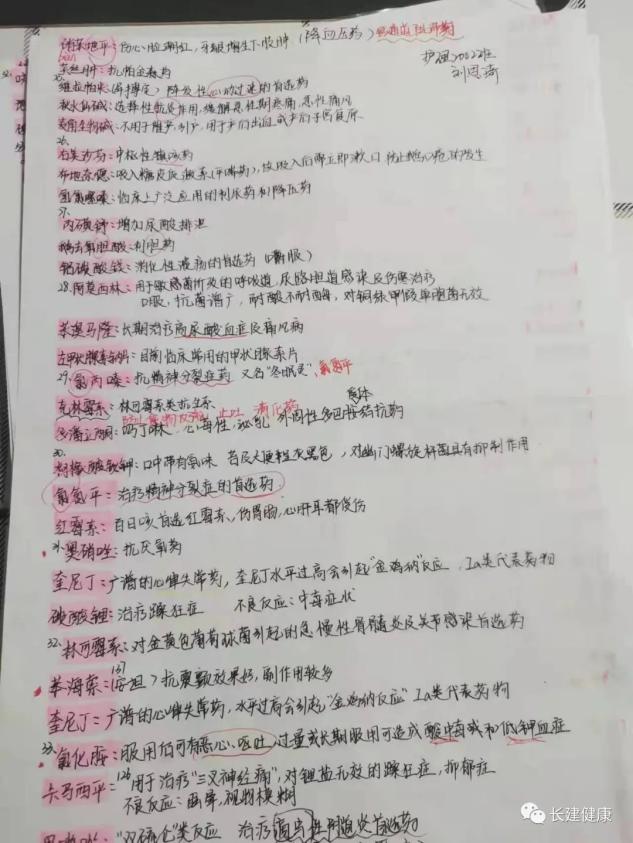 硝苯地平：伤心脸潮红，牙龈增生下肢肿（降血压药）
护理2022班
苯丝肼：抗帕金森药
维拉帕米：阵发性心动过速的首选药
秋水仙碱：选择性抗炎作用，缓解急性期疼痛，急性痛风
麦角生物碱：不用于催产，引产，用于产后出血或产后子宫复原
26.
右美沙芬：中枢性镇咳药
布地奈德：吸入糖皮质激素(平喘药)，故吸入后嘱立即漱口
氢氯噻嗪：临床上广泛应用的利尿药和降压药
27.
丙磺舒：增加尿酸排泄
鹅去氧胆酸：利胆药
铝碳酸镁：消化性溃疡的首选药（嚼服）
28.阿莫西林：用于敏感菌所致的呼吸道，尿路胆道感染及伤寒治疗
口服，抗菌谱广，耐酸不耐酶，对铜绿假单胞菌无效
苯溴马隆：长期治疗高尿酸血症及痛风病
左甲状腺素钠片：目前临床常用的甲状腺素片
29.氯丙嗪：抗精神分裂症药 又名“冬眠灵”，氯氮平
克林霉素：林可霉素类抗生素
多潘立酮：吗丁啉 外周性多巴胺 受体 拮抗药
30.
枸橼酸铋钾：口中带有氨味 舌及大便呈灰黑色，对幽门螺旋杆菌具有抑制作用
氯氮平：治疗精神分裂症的首选药
红霉素：百日咳首选红霉素，伤胃肠，心肝耳都俊伤
31.奥硝唑：抗厌氧药
奎尼丁：广谱的心律失常药，奎尼丁水平过高会引起“金鸡纳”反应，Ia类代表药物
碳酸锂：治疗躁狂症 不良反应：中毒症状
32.林可霉素：对金黄色葡萄球菌引起的急慢性骨髓炎及关节感染首选药
苯海索：(安坦)抗震颤效果好，副作用较多
奎尼丁：广谱的心律失常药，水平过高会引起“金鸡纳反应”Ia类代表药物
33.氯化铵：服用后可有恶心、呕吐，过量或长期服用可造成酸中毒和低钾血症
卡马西平：用于治疗“三叉神经痛”，对锂盐无效的躁狂症，抑郁症
不良反应：头晕，视物模糊
“双硫仑”类反应 治疗滴虫性阴道炎首选药
长建健康